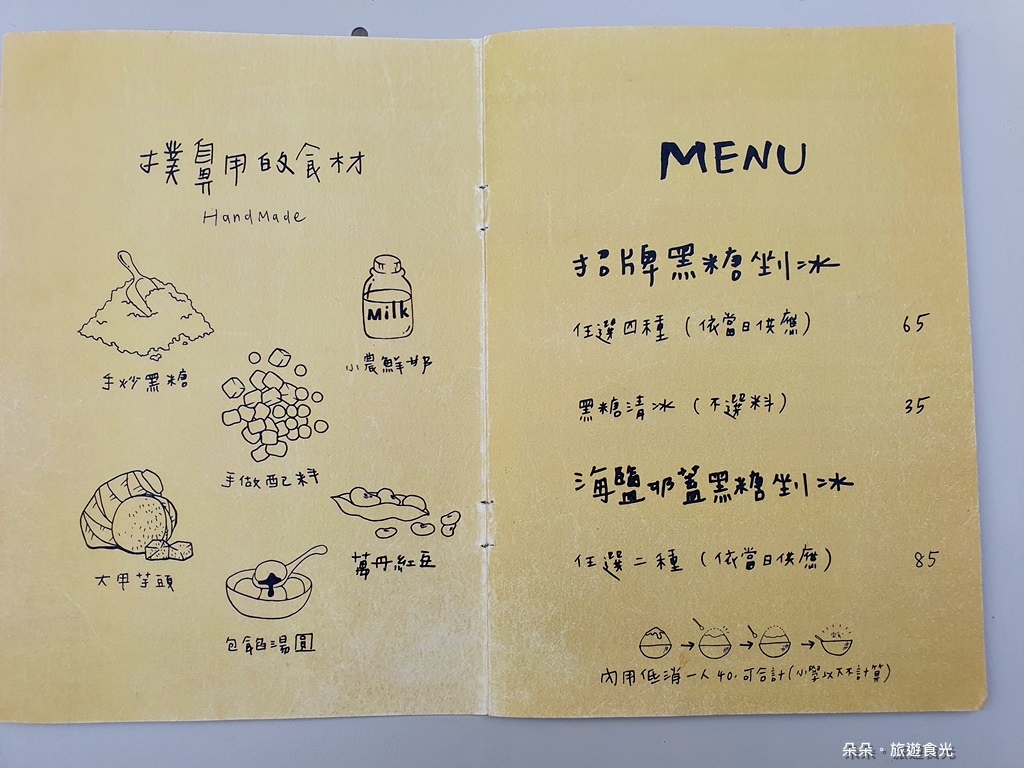 撲鼻用的食材
HandMade
Milk
手炒黑糖
小農鮮奶
手做配料
大甲芋頭
萬丹紅豆
包餡湯圓
MENU
招牌黑糖剉冰
任選四種(依當日供應) 65
黑糖清冰(不選料) 35
海鹽奶蓋黑糖剉冰
任選二種(依當日供應) 85
內用低消一人40.可合計(小學以下不計算)
朵朵。旅遊食光